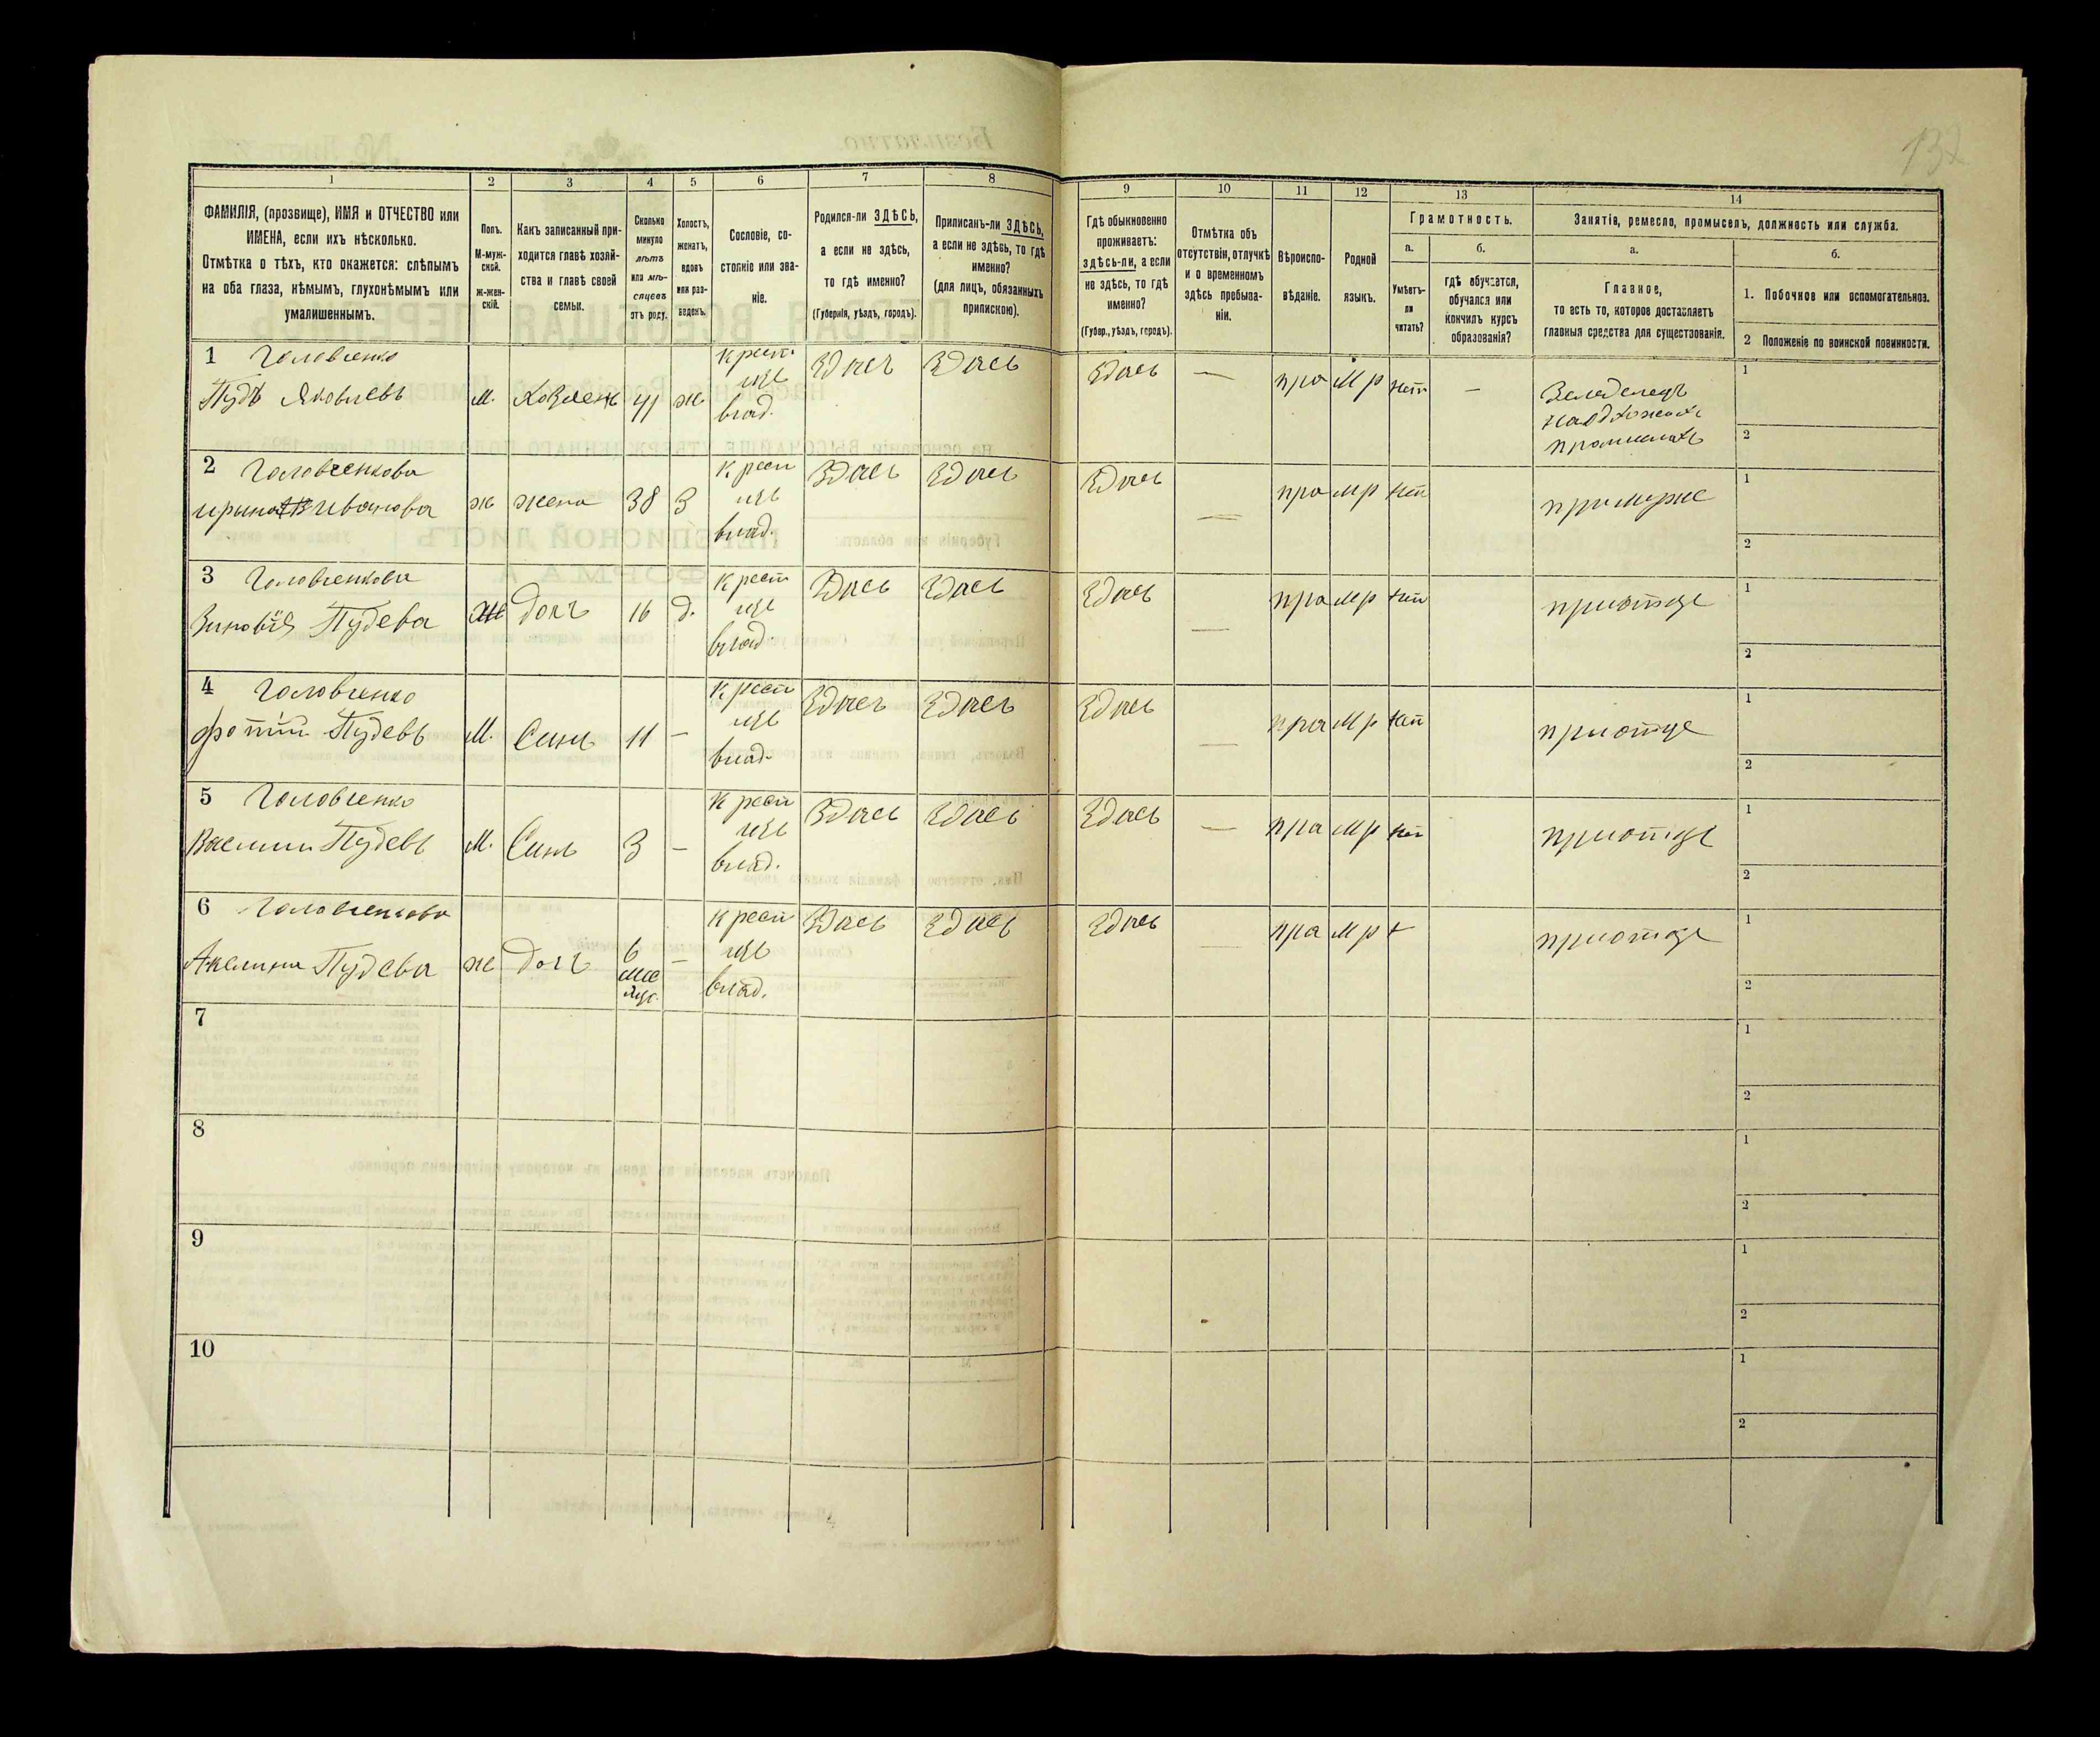 132
1
2
3
4
5
6
7
8
9
10
11
12
13
14
ФАМИЛІЯ, (прозвище), ИМЯ и ОТЧЕСТВО или
ИМЕНА, если ихъ нѣсколько.
Отмѣтка о тѣхъ, кто окажется: слѣпымъ
на оба глаза, нѣмымъ, глухонѣмымъ или
умалишеннымъ.
Полъ.
М-муж-
ской.
ж-жен-
скій.
Какъ записанный при-
ходится главѣ хозяй-
ства и главѣ своей
семьи.
Сколько
минуло
лѣтъ
или мѣ-
сяцевъ
отъ роду.
Холостъ,
женатъ,
вдовъ
или раз-
веденъ.
Сословіе, со-
стояніе или зва-
ніе.
Родился-ли ЗДѢСЬ,
а если не здѣсь,
то гдѣ именно?
(Губернія, уѣздъ, городъ).
Приписанъ-ли ЗДѢСЬ,
а если не здѣсь, то гдѣ
именно?
(для лицъ, обязанныхъ
припискою).
Гдѣ обыкновенно
проживаетъ:
здѣсь-ли, а если
не здѣсь, то гдѣ
именно?
(Губер., уѣздъ, городъ).
Отмѣтка объ
отсутствіи, отлучкѣ
и о временномъ
здѣсь пребыва-
ніи.
Вѣроиспо-
вѣданіе.
Родной
языкъ.
Грамотность.
а.
Умѣетъ-
ли
читать?
б.
гдѣ обучается,
обучался или
кончилъ курсъ
образованія?
Занятіе, ремесло, промыселъ, должность или служба.
а.
Главное,
то есть то, которое доставляетъ
главныя средства для существованія.
б.
1. Побочное или вспомогательное.
2 Положеніе по воинской повинности.
1 Головченко
Пудъ Яковлевъ
м. 41 ж
Крест
изъ
влад.
Здѣсь Здѣсь Здѣсь — пра мр нѣт —
1
2
2 Головченкова
Ирина Иванова
ж жена 38 З
Крест
изъ
влад.
Здѣсь Здѣсь Здѣсь — пра мр нѣт
при муже
1
2
3 Головченкова
Зиновія Пудева
ж дочь 16 д.
Крест
изъ
влад.
Здѣсь Здѣсь Здѣсь — пра мр нѣт
при отце
1
2
4 Головченко
Фотій Пудевъ
М. Сынъ 11 —
Крест
изъ
влад.
Здѣсь Здѣсь Здѣсь — пра мр нѣт
при отце
1
2
5 Головченко
Василий Пудевъ
М. Сынъ 3 —
Крест
изъ
влад.
Здѣсь Здѣсь Здѣсь — пра мр нѣт
при отце
1
2
6 Головченкова
Акелина Пудева
ж дочь 6
мѣс
яцъ. —
Крест
изъ
влад.
Здѣсь Здѣсь Здѣсь — пра мр
при отце
1
2
7
1
2
8
1
2
9
1
2
10
1
2